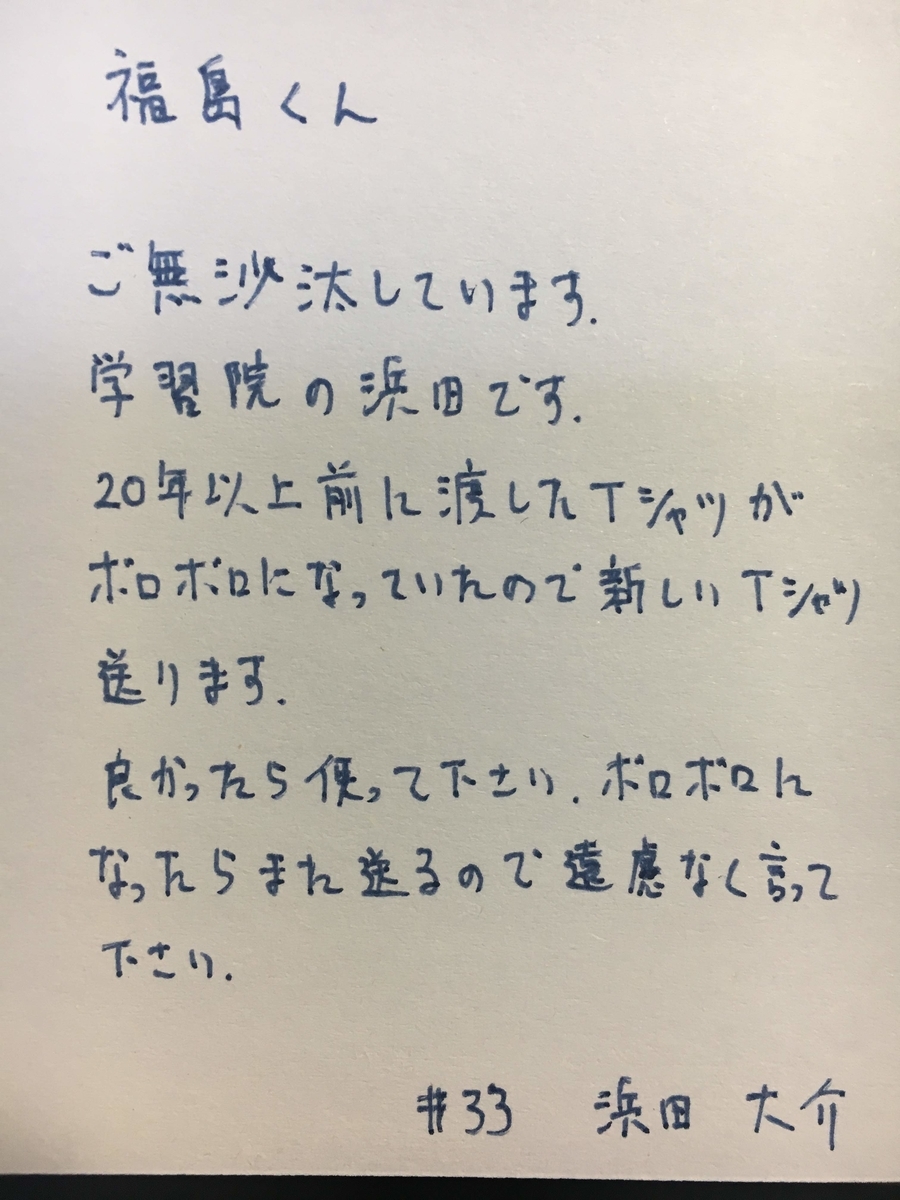 福島くん
ご無沙汰しています.
学習院の浜田です.
20年以上前に渡したTシャツが
ボロボロになっていたので新しいTシャツ
送ります.
良かったら使って下さい.ボロボロに
なったらまた送るので遠慮なく言って
下さい.
#33 浜田 大介